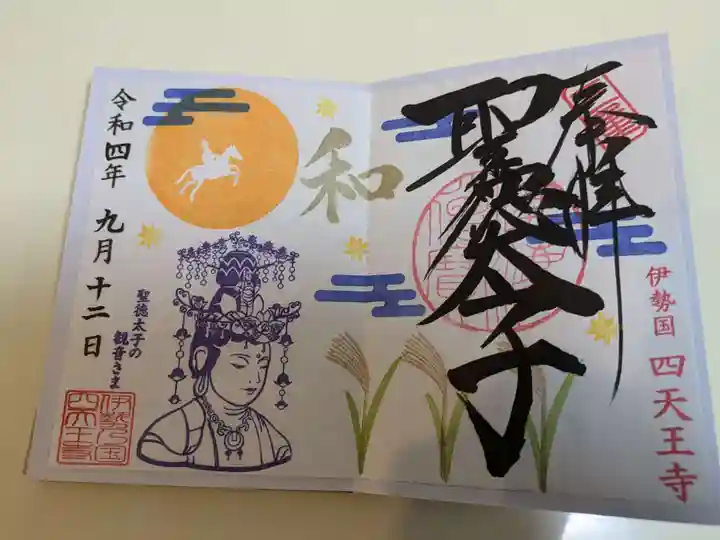 奉拝
聖徳太子
伊勢国 四天王寺
和
聖徳太子の
観音さま
令和四年 九月 十二日